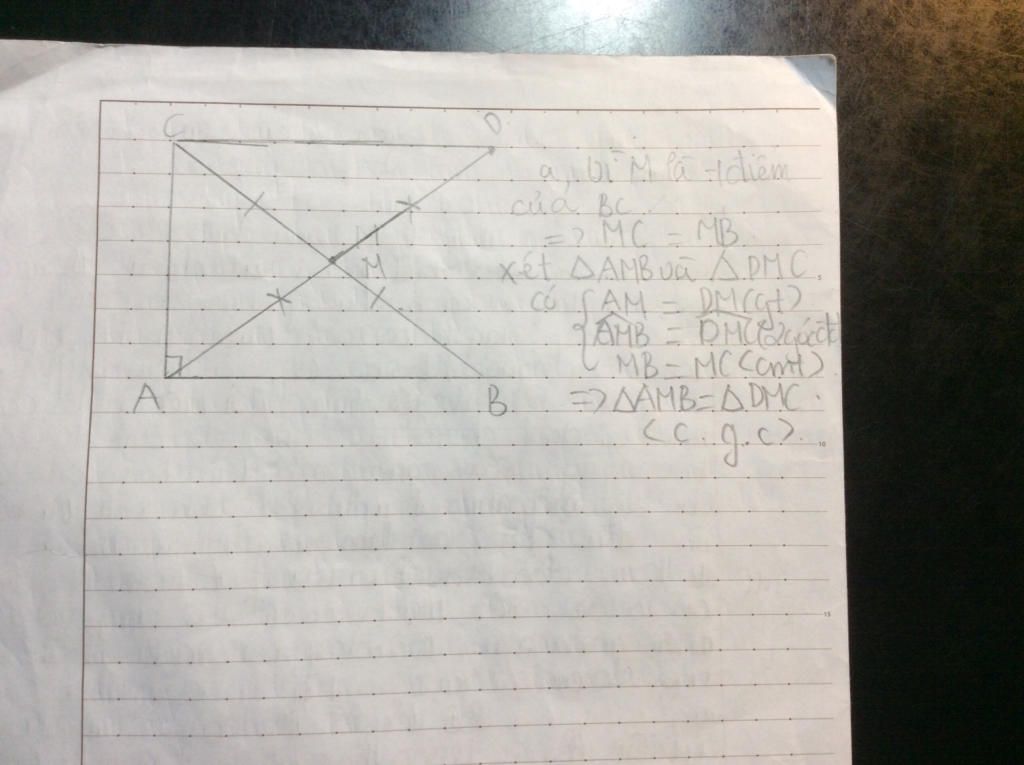 C D
a, Vì M là t điểm
của BC
=> MC = MB
M
xét ΔAMB và ΔDMC
có { AM = DM (gt)
AMB = DMC (2 góc đ
MB = MC (cmt)
A B
=> ΔAMB = ΔDMC.
<c.g.c>.
10
15